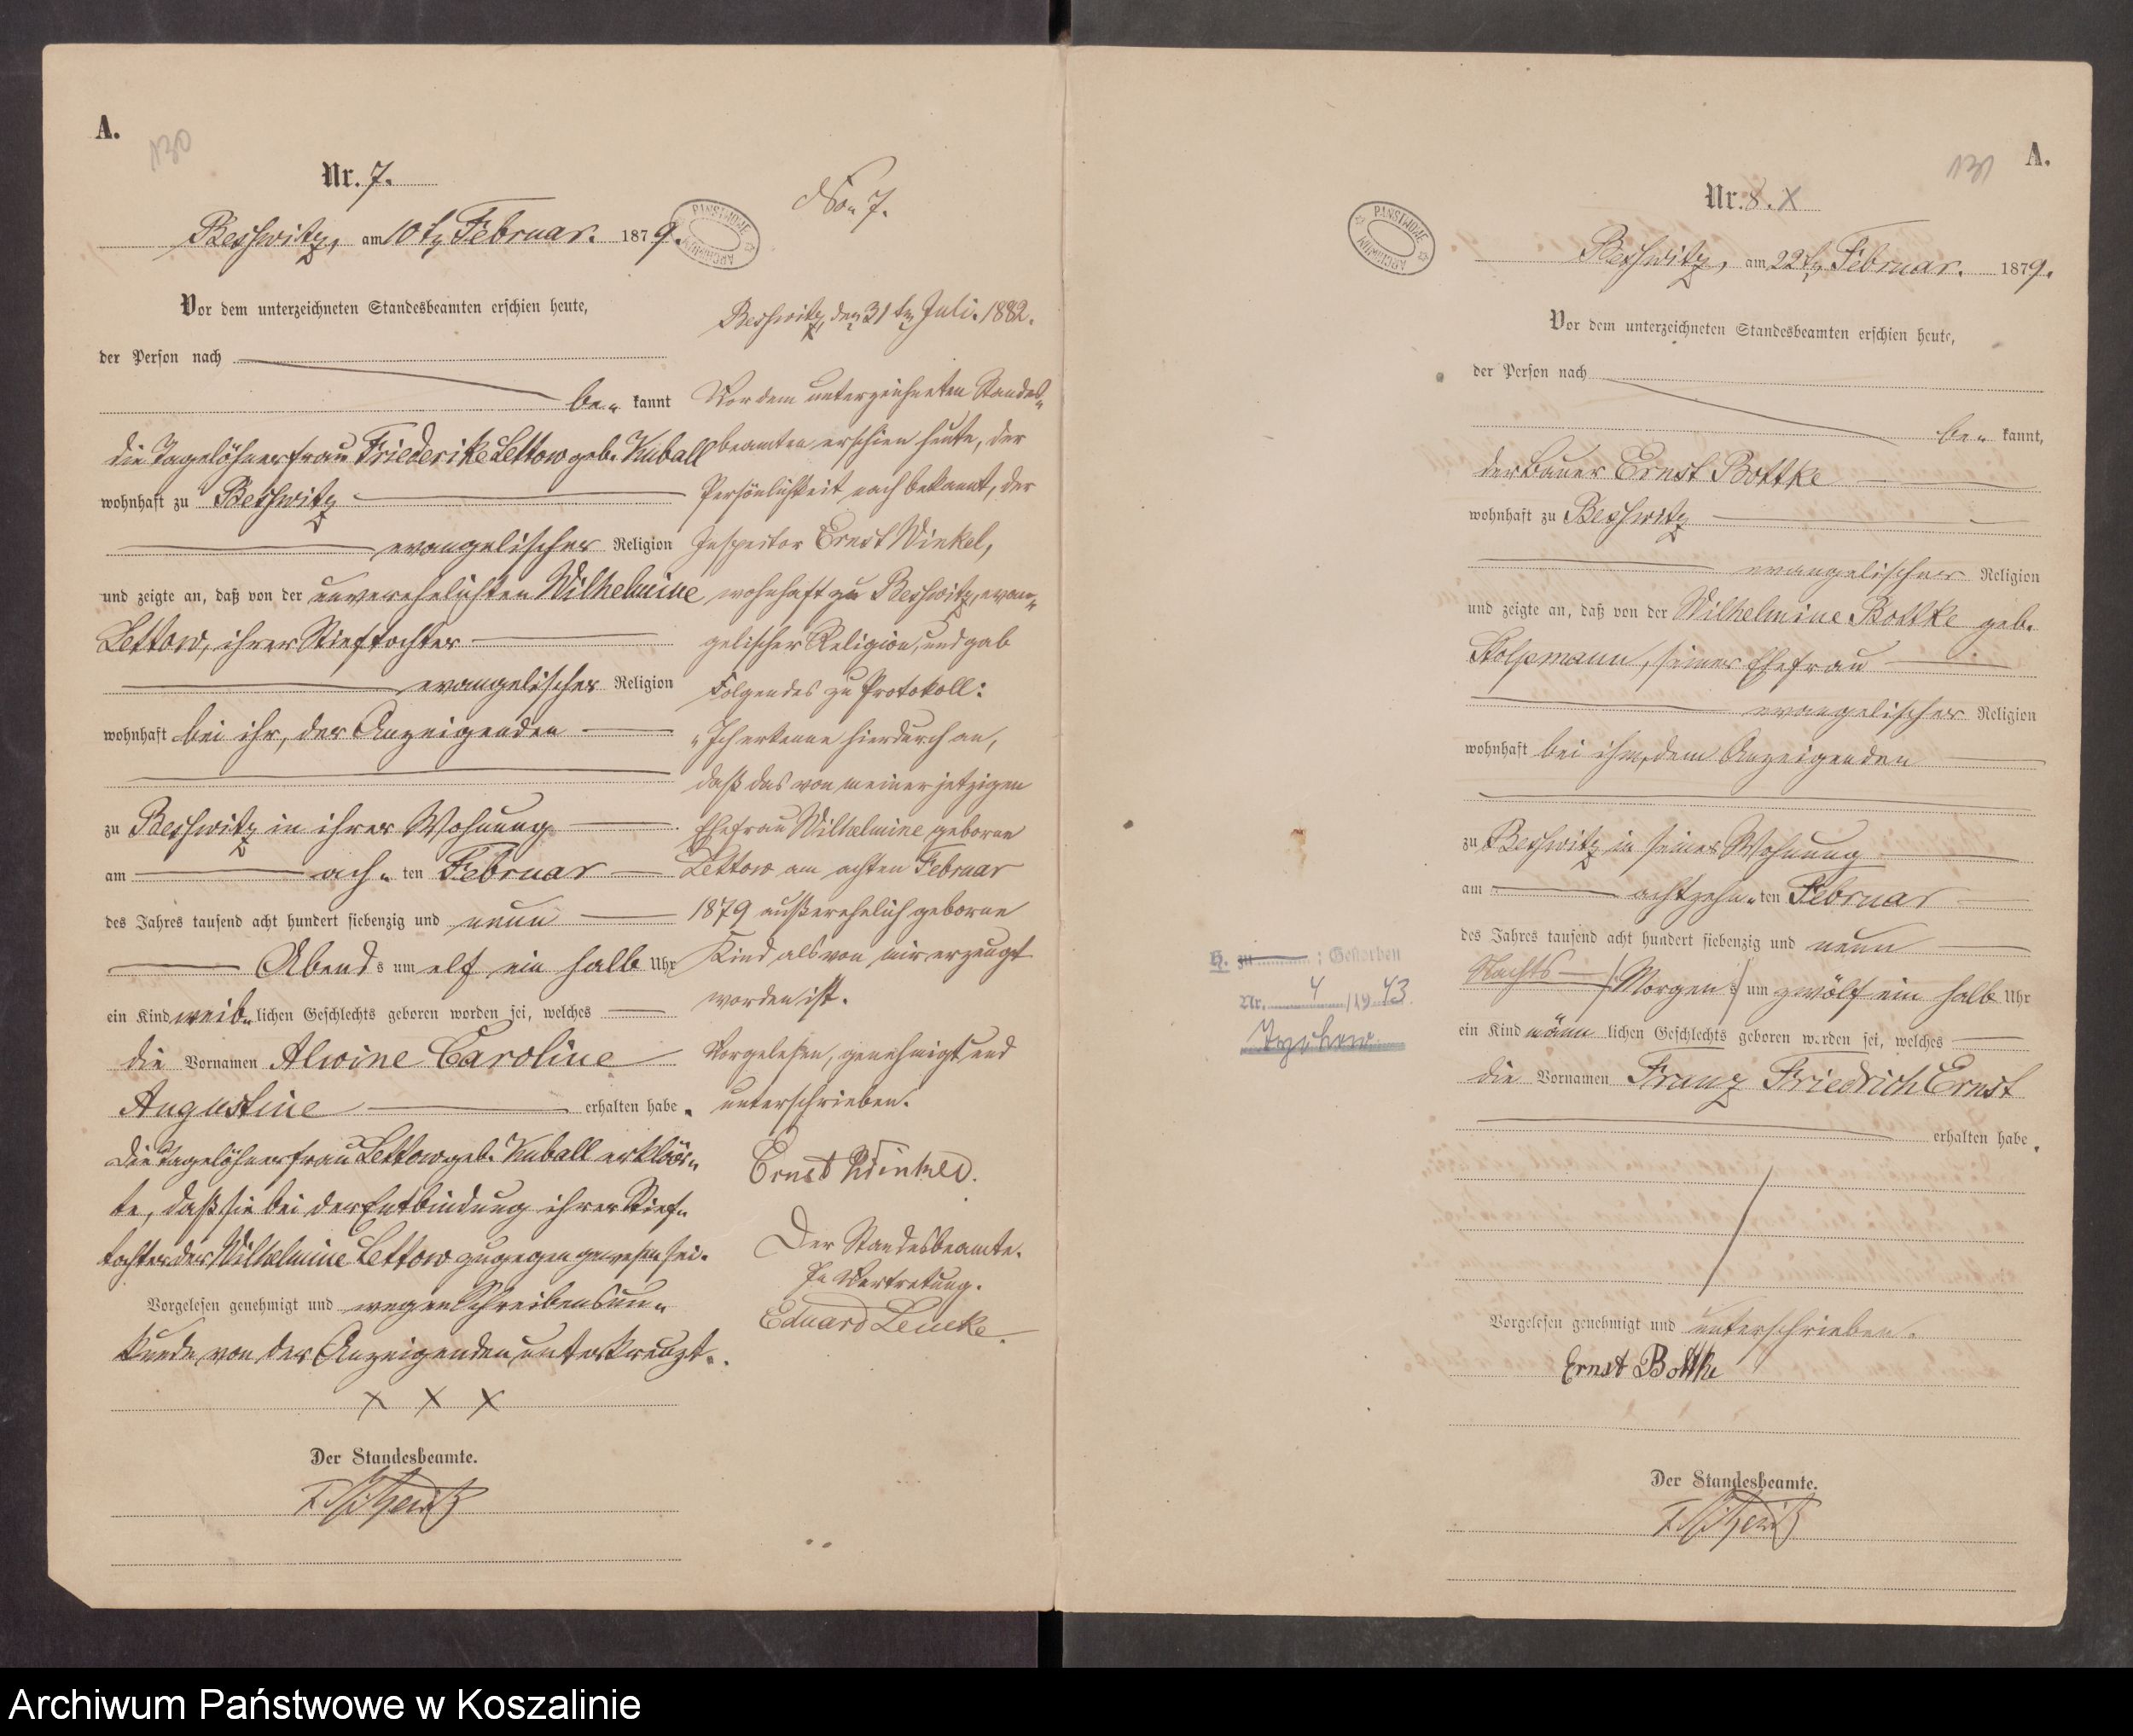 A.
130
Nr. 7.
Beßwitz, am 10ten Februar. 1879.
Vor dem unterzeichneten Standesbeamten erschien heute,
der Person nach
be= kannt
die Tagelöhnerfrau Friederike Lettow geb. Kuball
wohnhaft zu Beßwitz
evangelischer Religion
und zeigte an, daß von der unverehelichten Wilhelmine
Lettow, ihrer Stieftochter
evangelischer Religion
wohnhaft bei ihr, der Anzeigenden
zu Beßwitz in ihrer Wohnung
am ach= ten Februar
des Jahres tausend acht hundert siebenzig und neun
Abends um elf ein halb Uhr
ein Kind weib= lichen Geschlechts geboren worden sei, welches
die Vornamen Alwine Caroline
Augustine erhalten habe.
Die Tagelöhnerfrau Lettow geb. Kuball erklär=
te, daß sie bei der Entbindung ihrer Stief=
tochter der Wilhelmine Lettow zugegen gewesen sei.
Vorgelesen genehmigt und wegen Schreibensun=
kunde von der Anzeigenden unterkreuzt.
X X X
Der Standesbeamte.
PAŃSTWOWE
ARCHIWUM
No 7.
Beßwitz, den 31ten Juli. 1882.
Vor dem unterzeichneten Standes=
beamten erschien heute, der
Persönlichkeit nach bekannt, der
Inspector Ernst Winkel,
wohnhaft zu Beßwitz, evan=
gelischer Religion, und gab
Folgendes zu Protokoll:
"Ich erkenne hierdurch an,
daß das von meiner jetzigen
Ehefrau Wilhelmine geborne
Lettow am achten Februar
1879 außerehelich geborne
Kind als von mir erzeugt
worden ist.
Vorgelesen, genehmigt und
unterschrieben.
Ernst Winkel.
Der Standesbeamte.
In Vertretung.
Eduard Lemcke.
A.
131
Nr. 8. X
PAŃSTWOWE
ARCHIWUM
Beßwitz, am 22ten Februar. 1879.
Vor dem unterzeichneten Standesbeamten erschien heute,
der Person nach
be= kannt,
der Bauer Ernst Bottke
wohnhaft zu Beßwitz
evangelischer Religion
und zeigte an, daß von der Wilhelmine Bottke geb.
Stolpmann, seiner Ehefrau
evangelischer Religion
wohnhaft bei ihm, dem Anzeigenden
zu Beßwitz in seiner Wohnung
am achtzehn= ten Februar
des Jahres tausend acht hundert siebenzig und neun
Nachts (Morgens) um zwölf ein halb Uhr
ein Kind männ lichen Geschlechts geboren worden sei, welches
die Vornamen Franz Friedrich Ernst
erhalten habe.
Vorgelesen genehmigt und unterschrieben.
Ernst Bottke
Der Standesbeamte.
H. zu : Gestorben
Nr. 4 /1943.
Archiwum Państwowe w Koszalinie